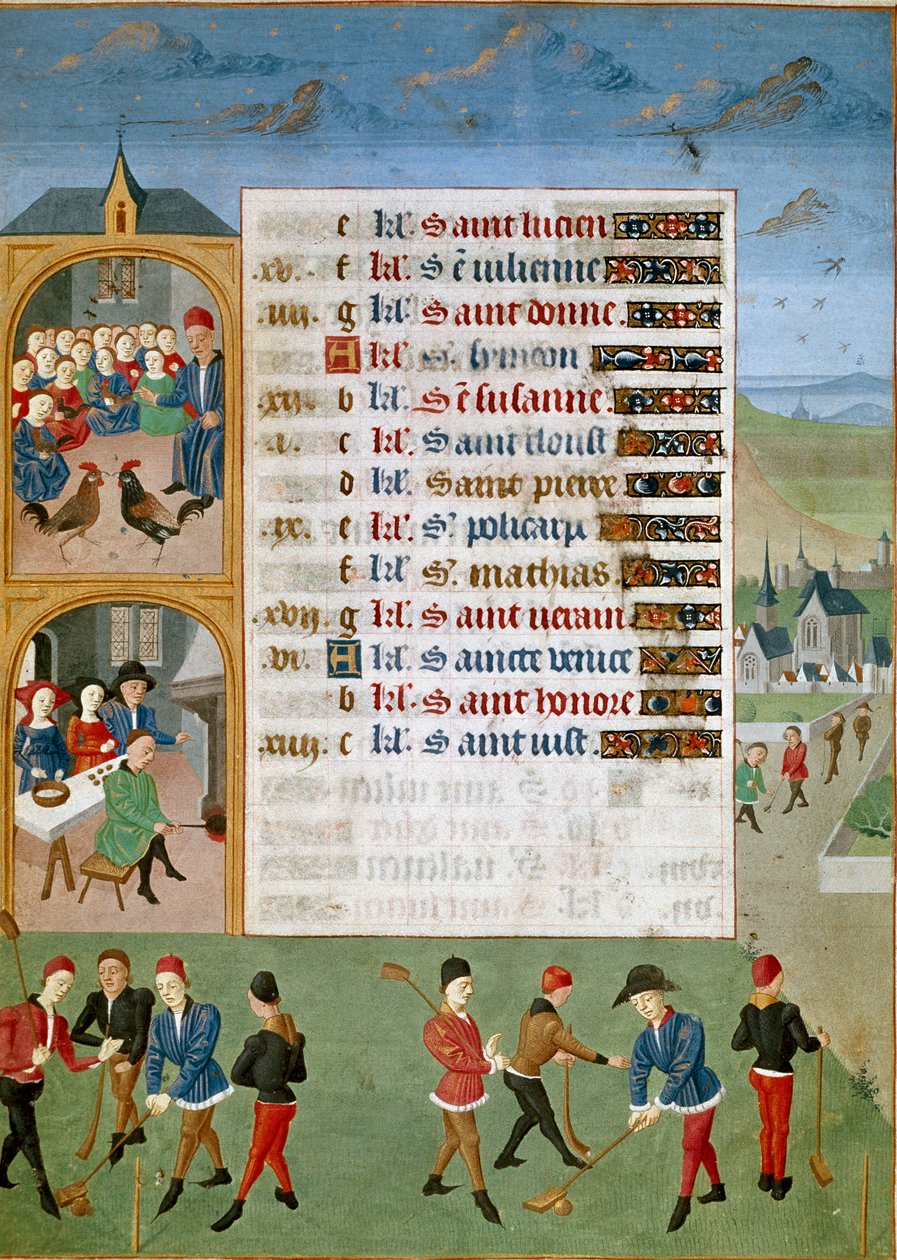 e kl'. Saint lucien
.xv. f kl'. Sē iulienne
.iiij. g kl'. Saint donne.
A kl'. S'. symeon
.xij. b kl'. Sē susanne.
.i. c kl'. Saint
d kl'. Saint pierre
.ix. e kl'. S'. policarpe
f kl' S'. mathias
.xvij. g kl'. Saint uerain
.vi. A kl'. Saincte venice
b kl'. Saint honore
.xiiij. c kl'. Saint iust.